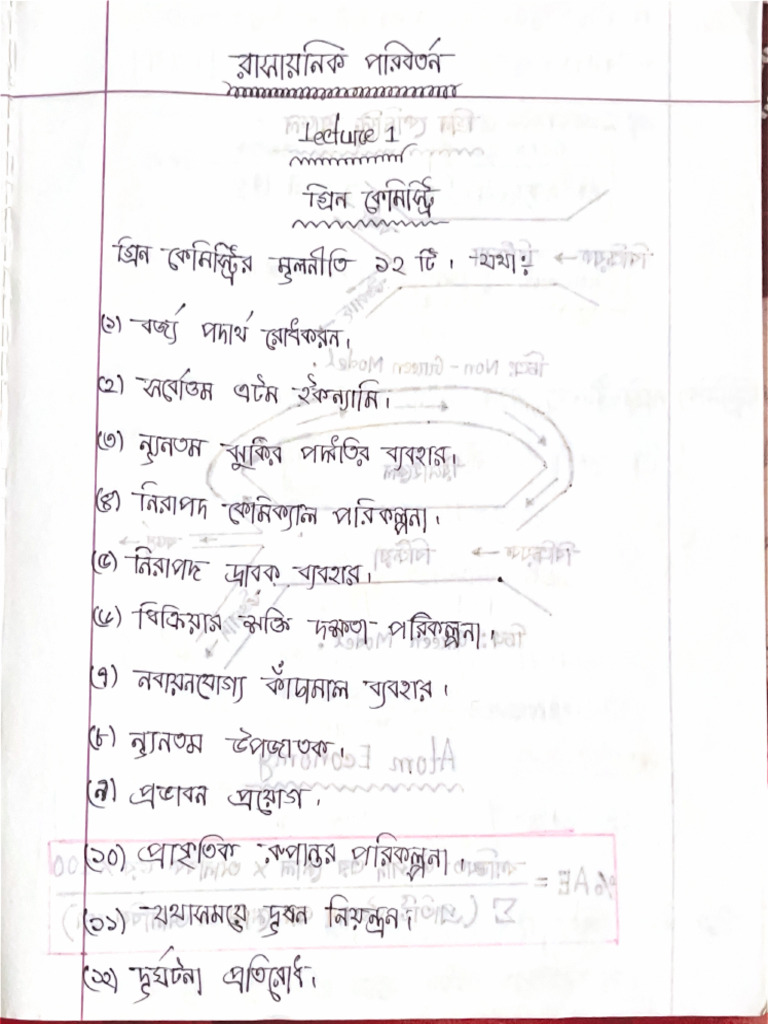 রাসায়নিক পরিবর্তন
Lecture 1
গ্রিন কেমিস্ট্রি
গ্রিন কেমিস্ট্রির মূলনীতি ১২ টি। যথা:
(১) বর্জ্য পদার্থ রোধকরন।
(২) সর্বোত্তম এটম ইকন্যামি।
(৩) ন্যুনতম ঝুকির পদ্ধতির ব্যবহার।
(৪) নিরাপদ কেমিক্যাল পরিকল্পনা।
(৫) নিরাপদ দ্রাবক ব্যবহার।
(৬) বিক্রিয়ার শক্তি দক্ষতা পরিকল্পনা।
(৭) নবায়নযোগ্য কাঁচামাল ব্যবহার।
(৮) ন্যুনতম উপজাতক।
(৯) প্রভাবন প্রয়োগ।
(১০) প্রাকৃতিক রূপান্তর পরিকল্পনা।
(১১) যথাসময়ে দূষন নিয়ন্ত্রন।
(১২) দূর্ঘটনা প্রতিরোধ।